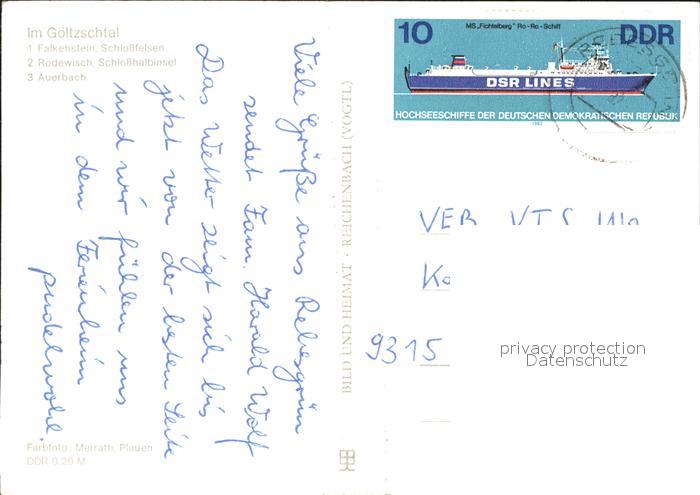 Im Göltzschtal
1 Falkenstein, Schloßfelsen
2 Rodewisch, Schloßhalbinsel
3 Auerbach
Viele Grüße aus Rebesgrün
sendet Fam. Harald Wolf
Das Wetter zeigt sich bis
jetzt von der besten Seite
und wir fühlen uns
in dem Ferienheim
pudelwohl.
Farbfoto: Merrath, Plauen
DDR 0,20 M
BILD UND HEIMAT · REICHENBACH (VOGTL)
MS „Fichtelberg" Ro-Ro-Schiff
10 DDR
DSR LINES
HOCHSEESCHIFFE DER DEUTSCHEN DEMOKRATISCHEN REPUBLIK
1982
9315
privacy protection
Datenschutz